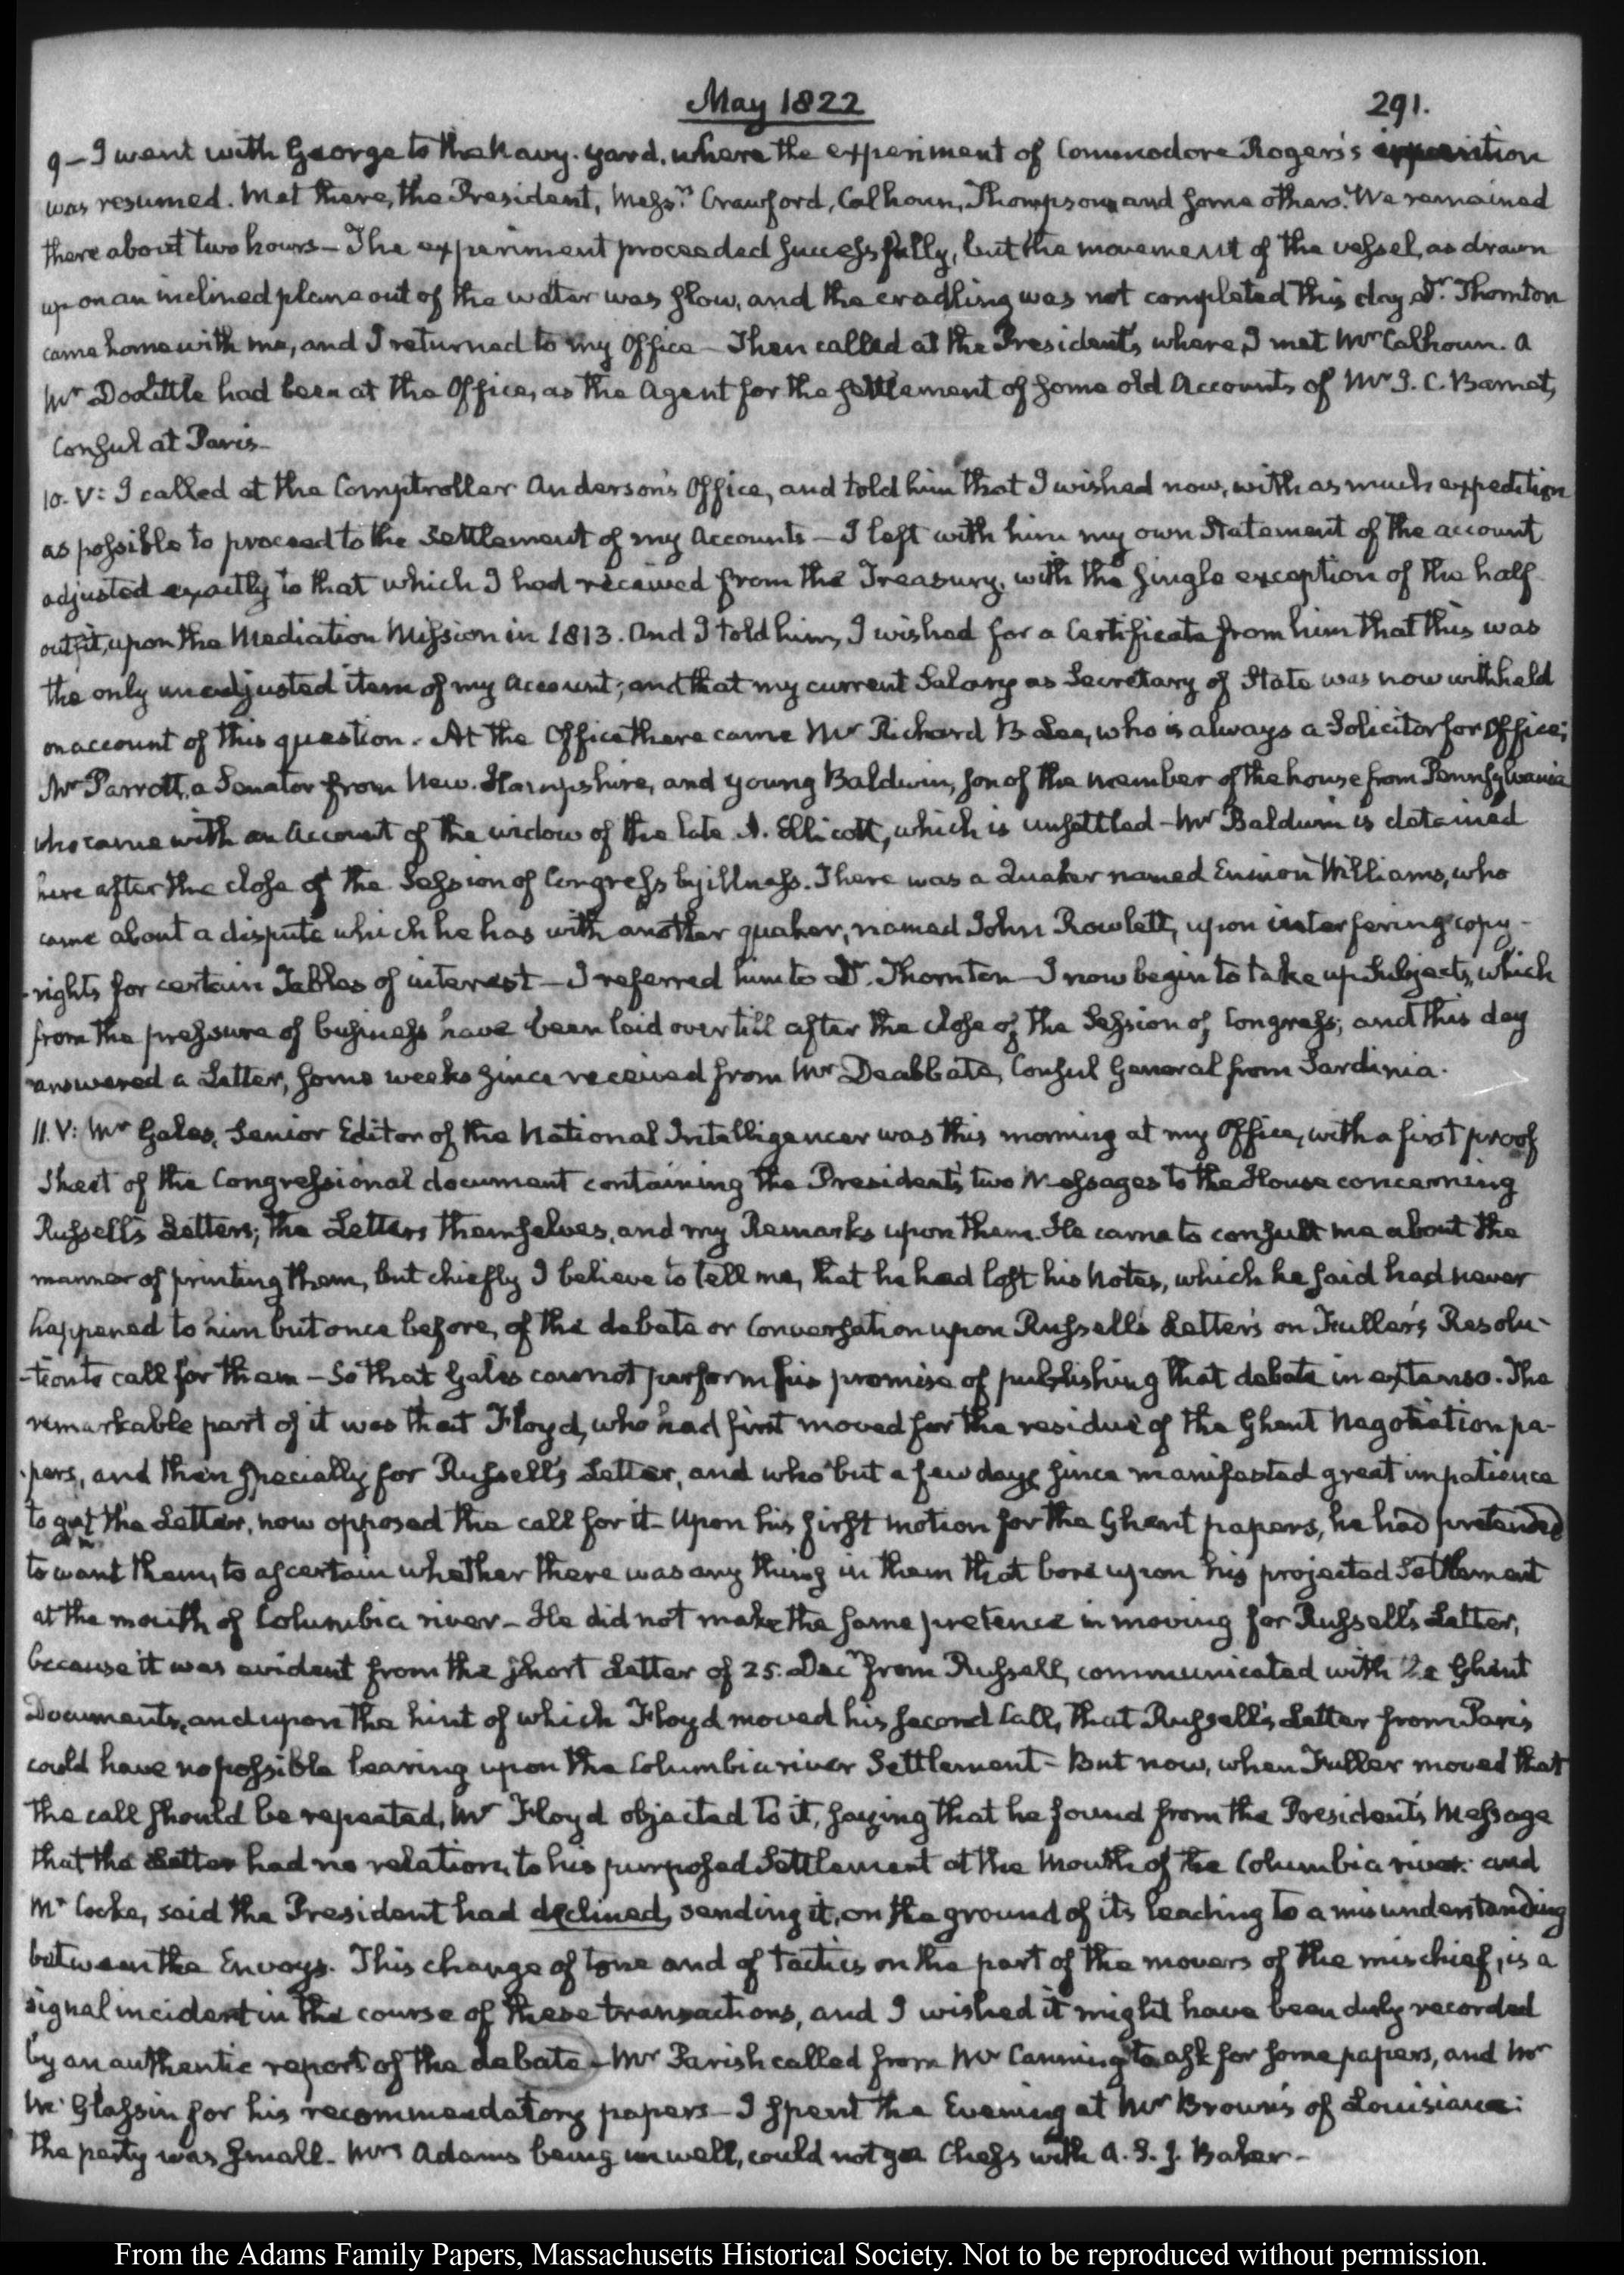 May 1822
291.
9 - I went with George to the Navy-yard, where the experiment of Commodore Rogers's
was resumed. Met there, the President, Messrs. Crawford, Calhoun, Thompson and some others. We remained
there about two hours - The experiment proceeded successfully, but the movement of the vessel, as drawn
up on an inclined plane out of the water was slow, and the cradling was not completed this day. Dr. Thornton
came home with me, and I returned to my Office - Then called at the President's, where I met Mr Calhoun. A
Mr Doolittle had been at the Office, as the Agent for the settlement of some old Accounts of Mr I. C. Barnet,
Consul at Paris -
10. V: I called at the Comptroller Anderson's Office, and told him that I wished now, with as much expedition
as possible to proceed to the Settlement of my Accounts - I left with him my own Statement of the account
adjusted exactly to that which I had received from the Treasury, with the single exception of the half
outfit, upon the Mediation Mission in 1813. And I told him, I wished for a Certificate from him that this was
the only unadjusted item of my Account; and that my current Salary as Secretary of State was now withheld
on account of this question. At the Office there came Mr Richard B Lee, who is always a Solicitor for Office;
Mr Parrott, a Senator from New-Hampshire, and young Baldwin, son of the member of the house from Pennsylvania
who came with an Account of the widow of the late A. Ellicott, which is unsettled - Mr Baldwin is detained
here after the close of the Session of Congress by illness. There was a Quaker named Ennion Williams, who
came about a dispute which he has with another quaker, named John Rowlett, upon interfering copy-
-rights for certain Tables of interest - I referred him to Dr. Thornton - I now begin to take up Subjects, which
from the pressure of business have been laid over till after the close of the Session of Congress; and this day
answered a Letter, some weeks since received from Mr Deabbate, Consul General from Sardinia.
11. V: Mr Gales, Senior Editor of the National Intelligencer was this morning at my Office, with a first proof
Sheet of the Congressional document containing the President's two Messages to the House concerning
Russell's Letters; the Letters themselves, and my Remarks upon them. He came to consult me about the
manner of printing them, but chiefly I believe to tell me, that he had lost his Notes, which he said had never
happened to him but once before, of the debate or Conversation upon Russell's Letters on Fuller's Resolu-
-tion to call for them - So that Gales cannot perform his promise of publishing that debate in extenso. The
remarkable part of it was that Floyd, who had first moved for the residue of the Ghent Negotiation pa-
-pers, and then specially for Russell's Letter, and who but a few days since manifested great impatience
to get the Letter, now opposed the call for it - Upon his first motion for the Ghent papers, he had pretended
to want them, to ascertain whether there was any thing in them that bore upon his projected Settlement
at the mouth of Columbia river - He did not make the same pretence in moving for Russell's Letter,
because it was evident from the short Letter of 25. Decr from Russell, communicated with the Ghent
Documents, and upon the hint of which Floyd moved his second Call, that Russell's Letter from Paris
could have no possible bearing upon the Columbia river Settlement - But now, when Fuller moved that
the call should be repeated, Mr Floyd objected to it, saying that he found from the President's Message
that the Letter had no relation, to his purposed Settlement at the Mouth of the Columbia river: and
Mr Cocke, said the President had declined, sending it, on the ground of its leading to a misunderstanding
between the Envoys. This change of tone and of tactics on the part of the movers of the mischief, is a
signal incident in the course of these transactions, and I wished it might have been duly recorded
by an authentic report of the debate - Mr Parish called from Mr Canning to ask for some papers, and Mr
Mc Glassin for his recommendatory papers - I spent the Evening at Mr Brown's of Louisiana:
the party was small. Mrs Adams being unwell, could not go. Chess with A. S. J. Baker -
From the Adams Family Papers, Massachusetts Historical Society. Not to be reproduced without permission.